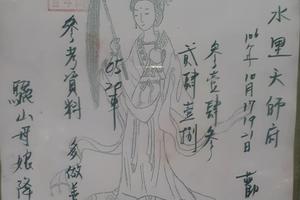 水里天師府
106年10月17日19-21日
參壹肆參
貳肆壹捌
05
參考資料
多做善
驪山母娘降